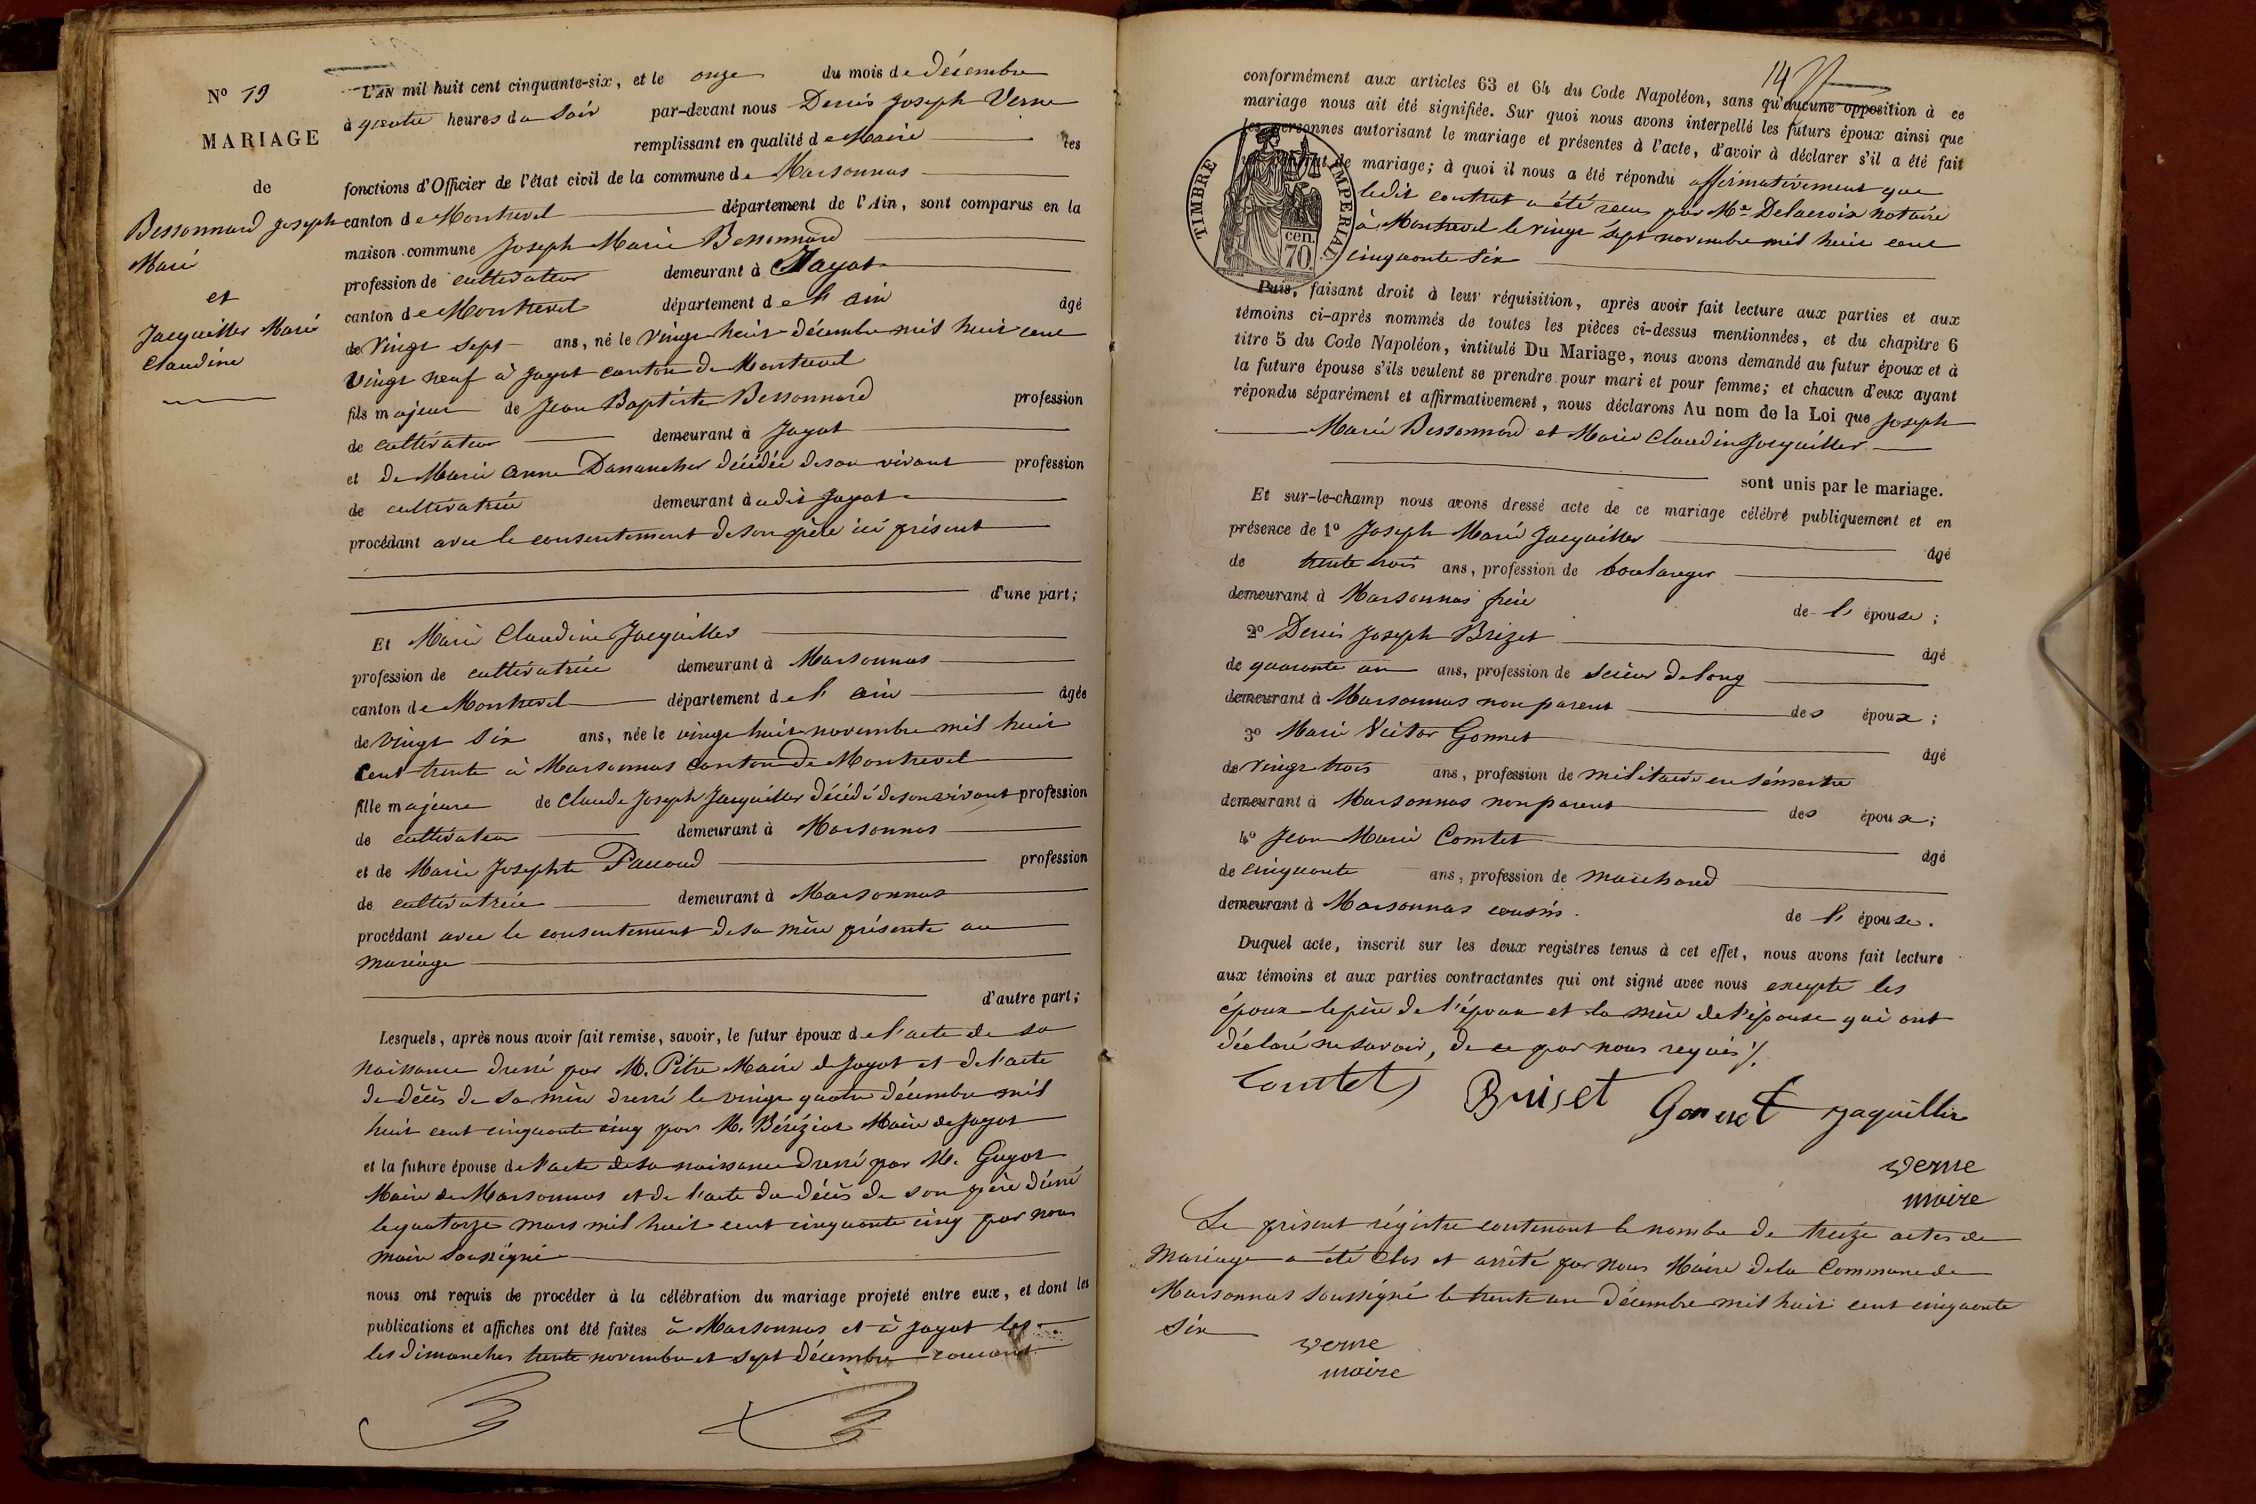 N° 13
MARIAGE
de
Bessonnard Joseph
Marie
et
Jacquiller Marie
Claudine
L'AN mil huit cent cinquante-six, et le onze du mois de décembre
à quatre heures du Soir par-devant nous Denis Joseph Verne
remplissant en qualité de Maire les
fonctions d'Officier de l'état civil de la commune de Marsonnas
canton de Montrevel département de l'Ain, sont comparus en la
maison commune Joseph Marie Bessonnard
profession de cultivateur demeurant à Jayat
canton de Montrevel département de l'ain âgé
de Vingt Sept ans, né le Vingt huit décembre mil huit cent
Vingt neuf à Jayat canton de Montrevel
fils majeur de Jean Baptiste Bessonnard profession
de cultivateur demeurant à Jayat
et de Marie Anne Dananches décédée de son vivant profession
de cultivatrice demeurant à udit Jayat
procédant avec le consentement de son père ici présent
d'une part;
Et Marie Claudine Jacquiller
profession de cultivatrice demeurant à Marsonnas
canton de Montrevel département de l'ain âgée
de Vingt Six ans, née le vingt huit novembre mil huit
Cent trente à Marsonnas Canton de Montrevel
fille majeure de Claude Joseph Jacquiller décédé de son vivant profession
de cultivateur demeurant à Marsonnas
et de Marie Josephte Paccoud profession
de cultivatrice demeurant à Marsonnas
procédant avec le consentement de sa mère présente au
mariage
d'autre part;
Lesquels, après nous avoir fait remise, savoir, le futur époux de l'acte de sa
naissance dressé par M. Pitre Maire de Jayat et de l'acte
de décès de sa mère dressé le vingt quatre décembre mil
huit cent cinquante cinq par M. Béréziat Maire de Jayat
et la future épouse de l'acte de sa naissance dressé par M. Guyot
Maire de Marsonnas et de l'acte du décès de son père dressé
le quatorze mars mil huit cent cinquante cinq par nous
maire Soussigné
nous ont requis de procéder à la célébration du mariage projeté entre eux, et dont les
publications et affiches ont été faites à Marsonnas et à Jayat les
les dimanches trente novembre et sept décembre courant
14
conformément aux articles 63 et 64 du Code Napoléon, sans qu'aucune opposition à ce
mariage nous ait été signifiée. Sur quoi nous avons interpellé les futurs époux ainsi que
les personnes autorisant le mariage et présentes à l'acte, d'avoir à déclarer s'il a été fait
de mariage; à quoi il nous a été répondu affirmativement que
ledit contrat a été reçu par Me Delacroix notaire
à Montrevel le vingt sept novembre mil huit cent
cinquante Six
TIMBRE IMPERIAL
70 cen.
Puis, faisant droit à leur réquisition, après avoir fait lecture aux parties et aux
témoins ci-après nommés de toutes les pièces ci-dessus mentionnées, et du chapitre 6
titre 5 du Code Napoléon, intitulé Du Mariage, nous avons demandé au futur époux et à
la future épouse s'ils veulent se prendre pour mari et pour femme; et chacun d'eux ayant
répondu séparément et affirmativement, nous déclarons Au nom de la Loi que Joseph
Marie Bessonnard et Marie Claudine Jacquiller
sont unis par le mariage.
Et sur-le-champ nous avons dressé acte de ce mariage célébré publiquement et en
présence de 1° Joseph Marie Jacquiller âgé
de trente trois ans, profession de boulanger
demeurant à Marsonnas frère de l'épouse;
2° Denis Joseph Brizet âgé
de quarante un ans, profession de scieur de long
demeurant à Marsonnas non parent des époux;
3° Marie Victor Gonnet âgé
de Vingt trois ans, profession de militaire en sémestre
demeurant à Marsonnas non parent des époux;
4° Jean Marie Comtet âgé
de cinquante ans, profession de marchand
demeurant à Marsonnas cousin de l'épouse.
Duquel acte, inscrit sur les deux registres tenus à cet effet, nous avons fait lecture
aux témoins et aux parties contractantes qui ont signé avec nous excepté les
époux le père de l'époux et la mère de l'épouse qui ont
déclaré ne savoir, de ce par nous requis ./.
Comtet Briset Gonnet Jaquillier
Verne
maire
Le présent régistre contenant le nombre de treize actes de
Mariage a été Clos et arrêté par nous Maire de la Commune de
Marsonnas Soussigné le trente un Décembre mil huit cent cinquante
Six
Verne
maire